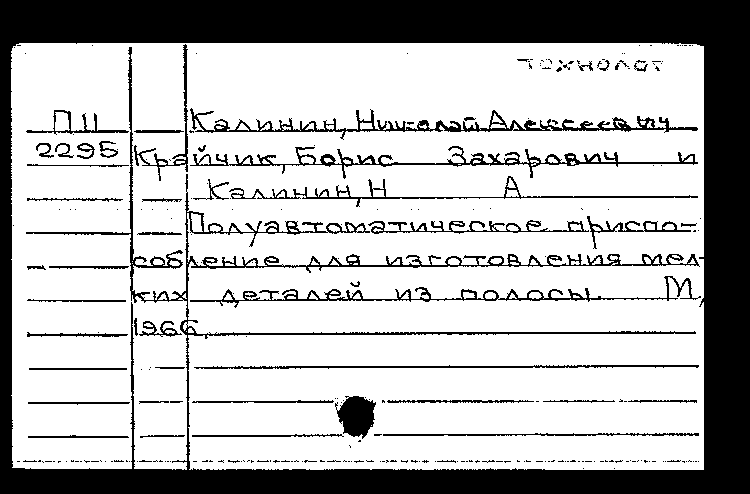 технолог
П11 Калинин, Николай Алексеевич
2295 Крайчик, Борис Захарович и
Калинин, Н А
Полуавтоматическое приспо-
собление для изготовления мел-
ких деталей из полосы. М,
1966.